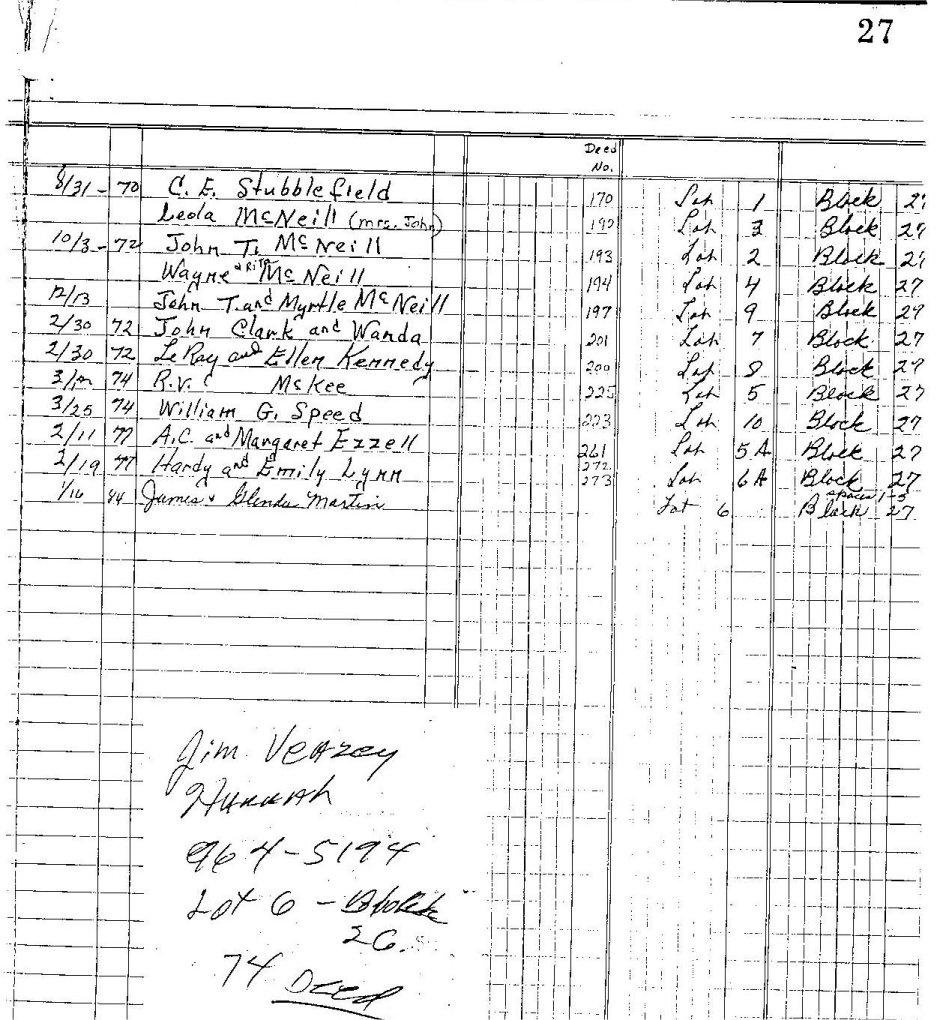 27
Deed
No.
8/31 - 70 C. E. Stubblefield 170 Lot 1 Block 27
Leola McNeill (mrs. John) 192 Lot 3 Block 27
10/3 - 72 John T. McNeill 193 Lot 2 Block 27
Wayne & McNeill 194 Lot 4 Block 27
12/13 John T. and Myrtle McNeill 197 Lot 9 Block 27
2/30 72 John Clark and Wanda 201 Lot 7 Block 27
2/30 72 LeRoy and Ellen Kennedy 200 Lot 8 Block 27
74 R.V. McKee 225 Lot 5 Block 27
3/25 74 William G. Speed 223 Lot 10 Block 27
2/11 77 A.C. and Margaret Ezzell 261 Lot 5A Block 27
2/19 77 Hardy and Emily Lynn 272 273 Lot 6A Block 27
spaces 1-3
1/16 84 James & Glenda Martin Lot 6 Block 27
Jim Veazey
Hannah
964-5194
Lot 6 - Block
26.
74 Deed